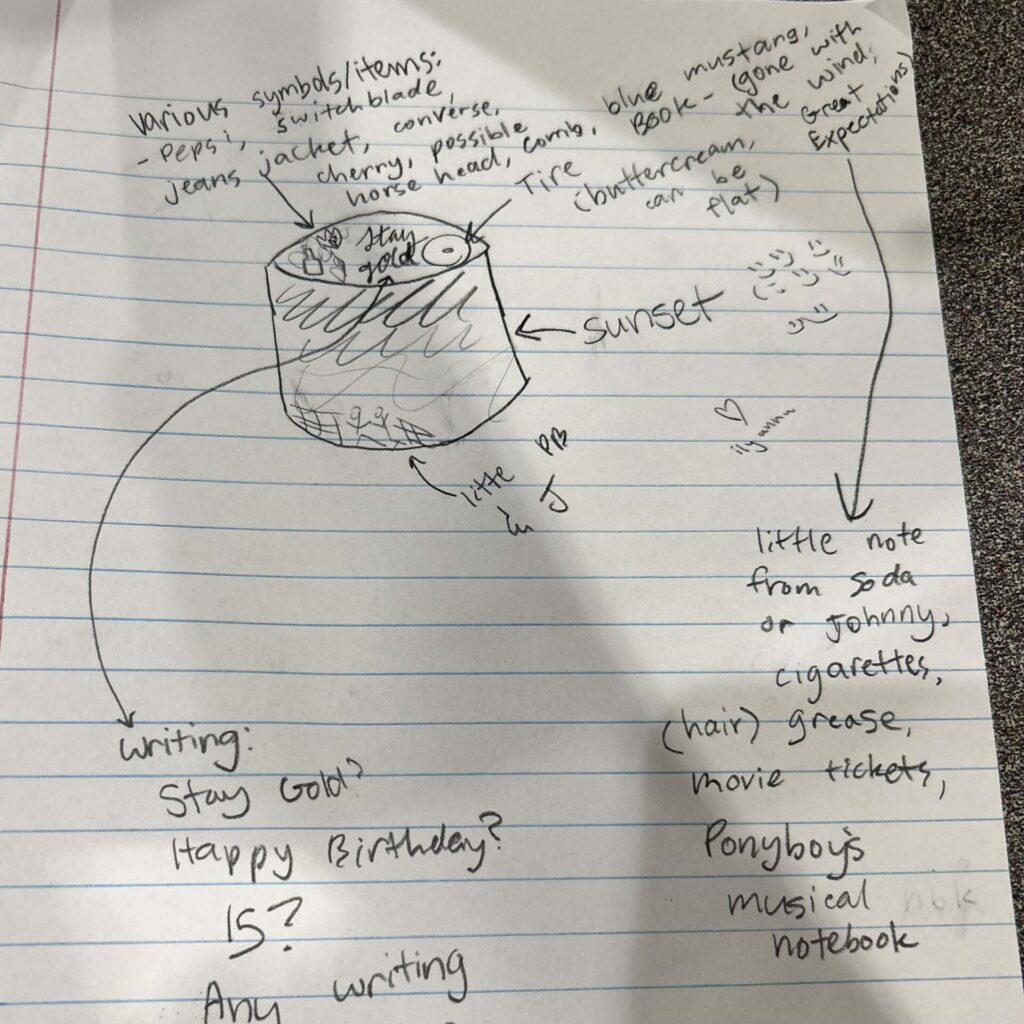 various symbols/items:
- Pepsi, switchblade,
jeans jacket, converse,
cherry, possible
horse head, comb, blue mustang,
BOOK - (gone with
the wind,
Great
Expectations)
Tire
(buttercream,
can be
flat)
Stay
gold
sunset
little PB
J
ily anna
little note
from Soda
or Johnny,
cigarettes,
(hair) grease,
movie tickets,
Ponyboy's
musical nbk
notebook
Writing:
Stay Gold?
Happy Birthday?
15?
Any writing